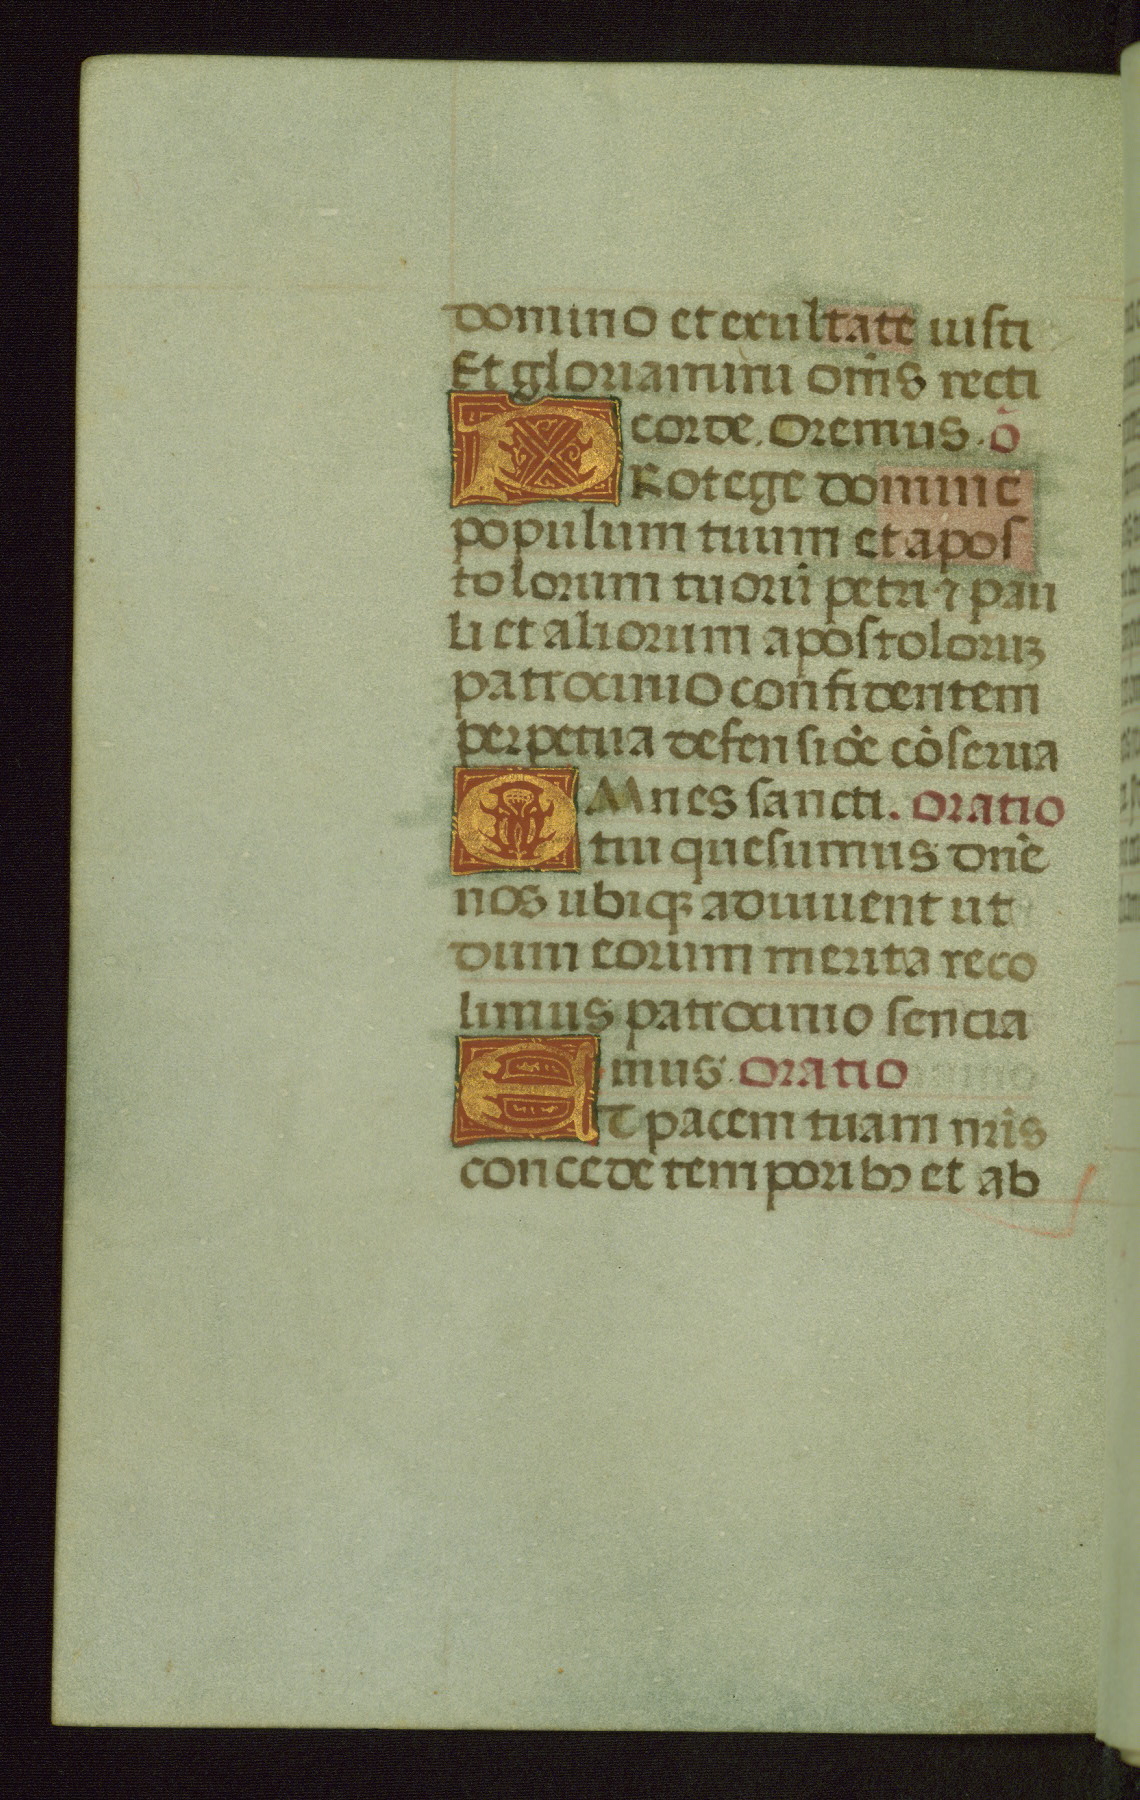 domino et exultate iusti
Et gloriamini om̄s recti
corde. Oremus. ō
PRotege domine
populum tuum et apos
tolorum tuorū petri ⁊ pau
li et aliorum apostoloruꝫ
patrocinio confidentem
perpetua defensiōe cōserua
OMnes sancti. oratio
tui quesumus dn̄e
nos ubiqꝫ adiuuent ut
dum eorum merita reco
limus patrocinio sencia
mus. oratio
ET pacem tuam nr̄is
concede temporibꝫ et ab